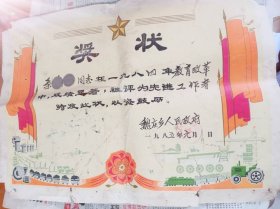 奖状
同志在一九八四年教育改革
中,成绩显著,被评为先进工作者
特发此状,以资鼓励。
乡人民政府
一九八五年元月 日